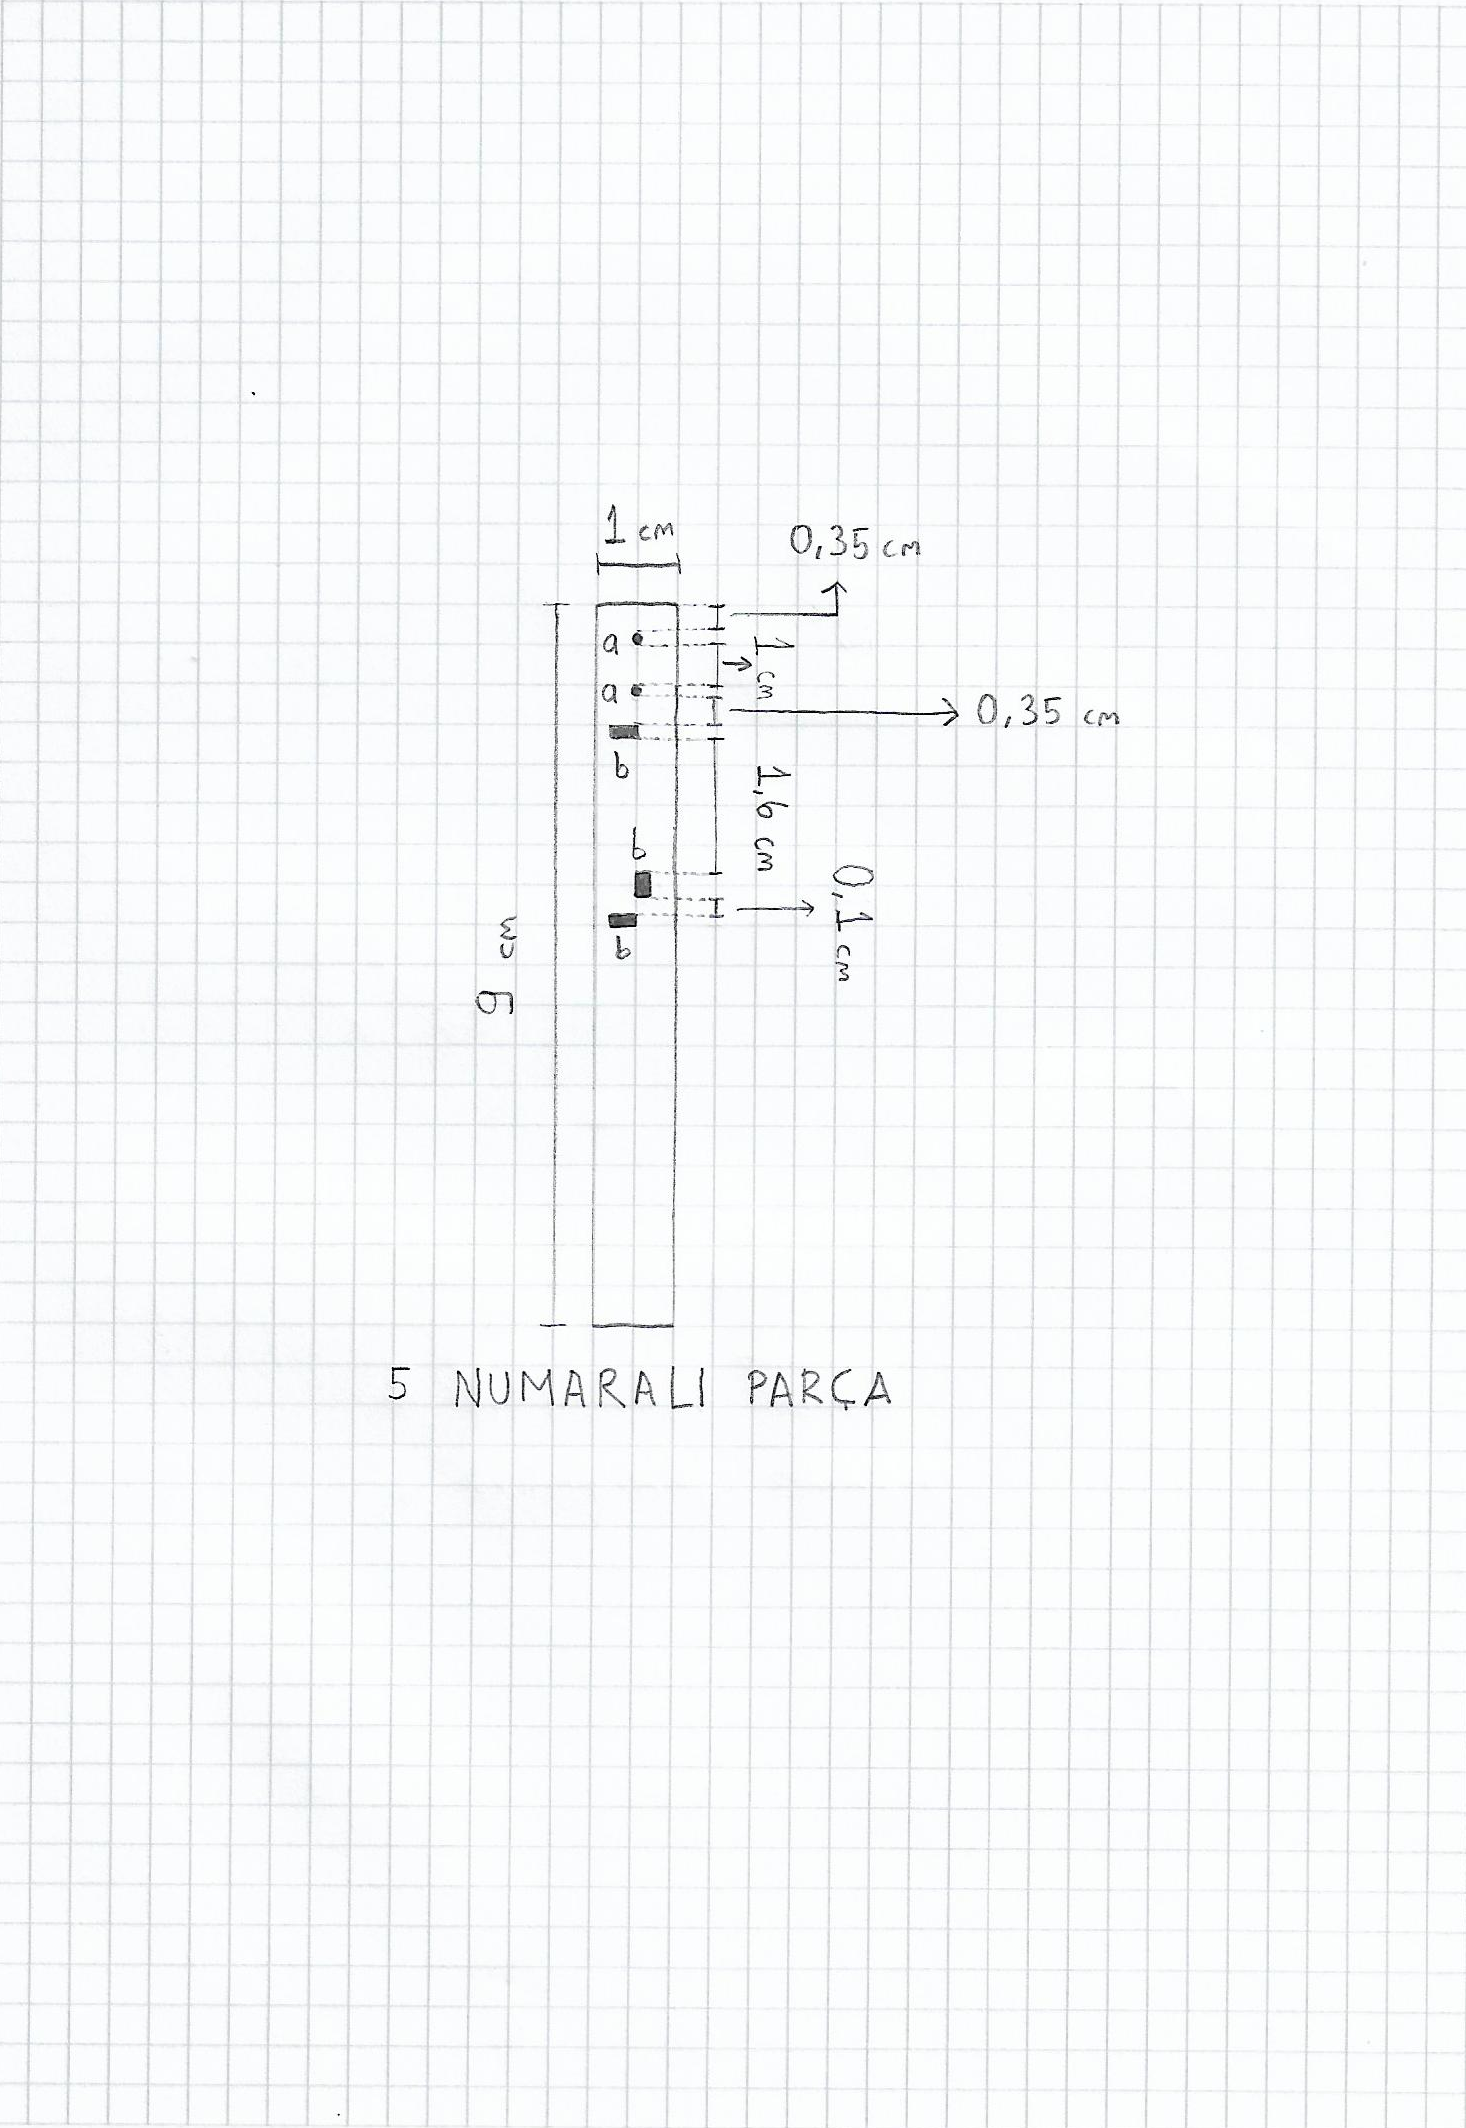 1 cm
0,35 cm
a
1 cm
a
0,35 cm
b
1,6 cm
b
0,1 cm
b
9 cm
5 NUMARALI PARÇA